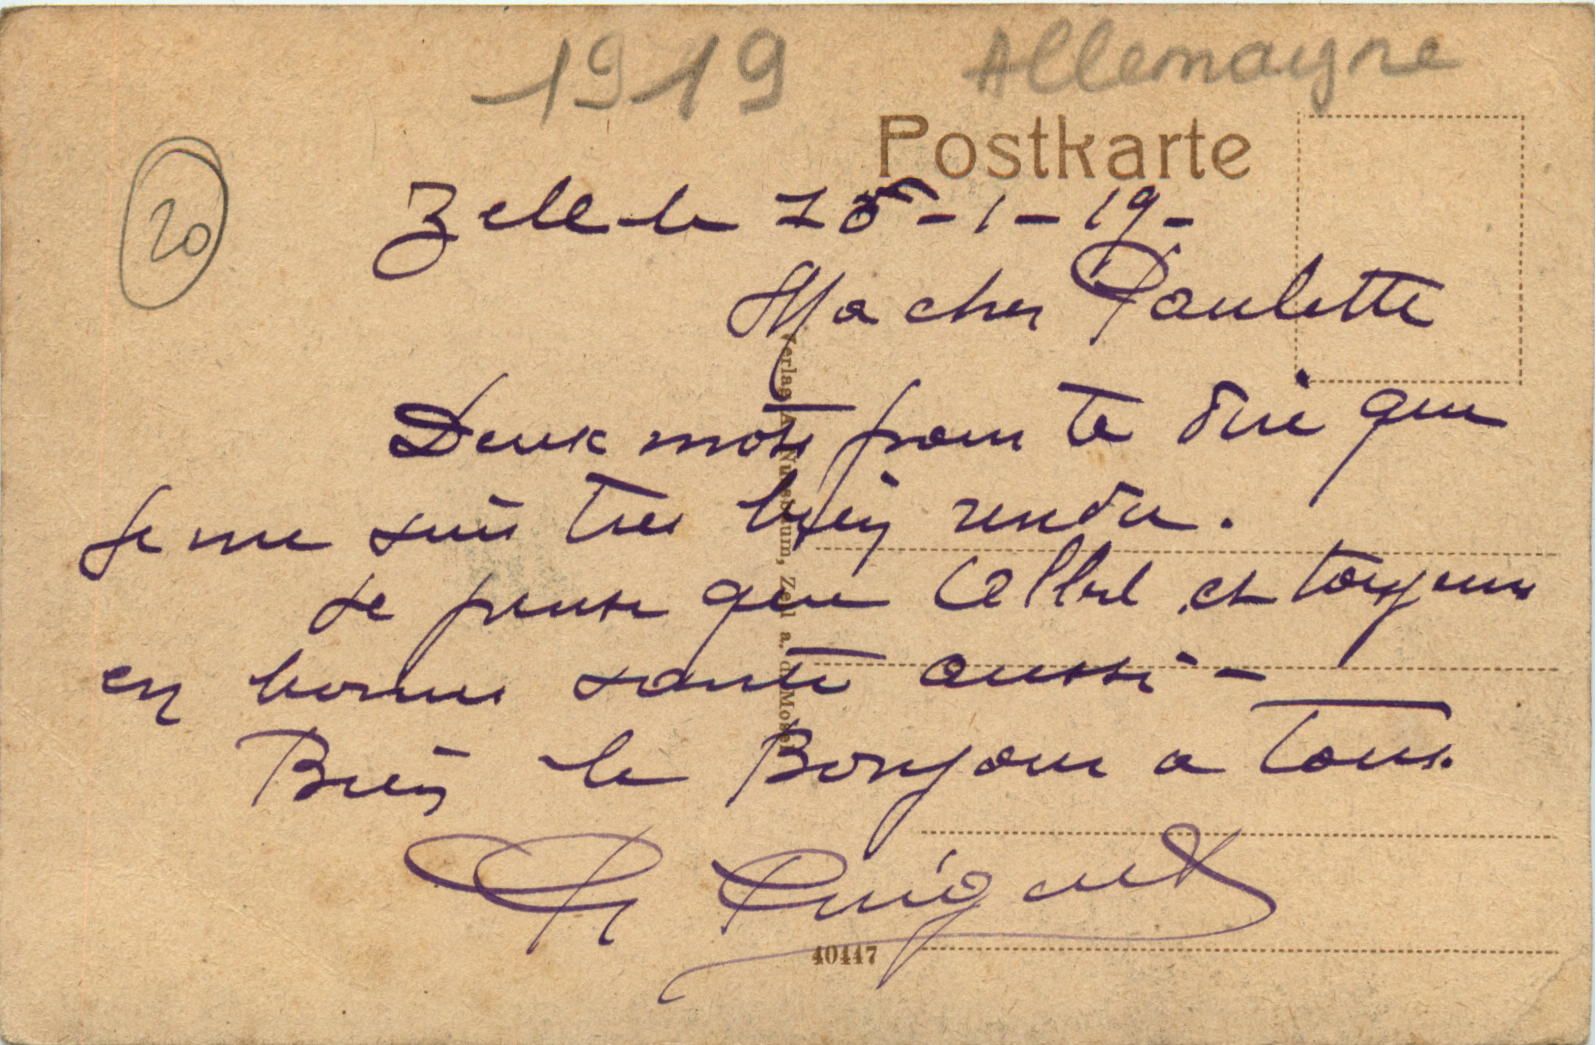 1919 Allemagne
Postkarte
20
Zell le 18-1-19-
Ma cher Paulette
Deux mots pour te dire que
Je me suis tres bien rendu.
Je pense que et toujours
en bonne sante aussi -
Bien le Bonjour a tous.
Verlag A. Nussbaum, Zell a. d. Mosel
40447